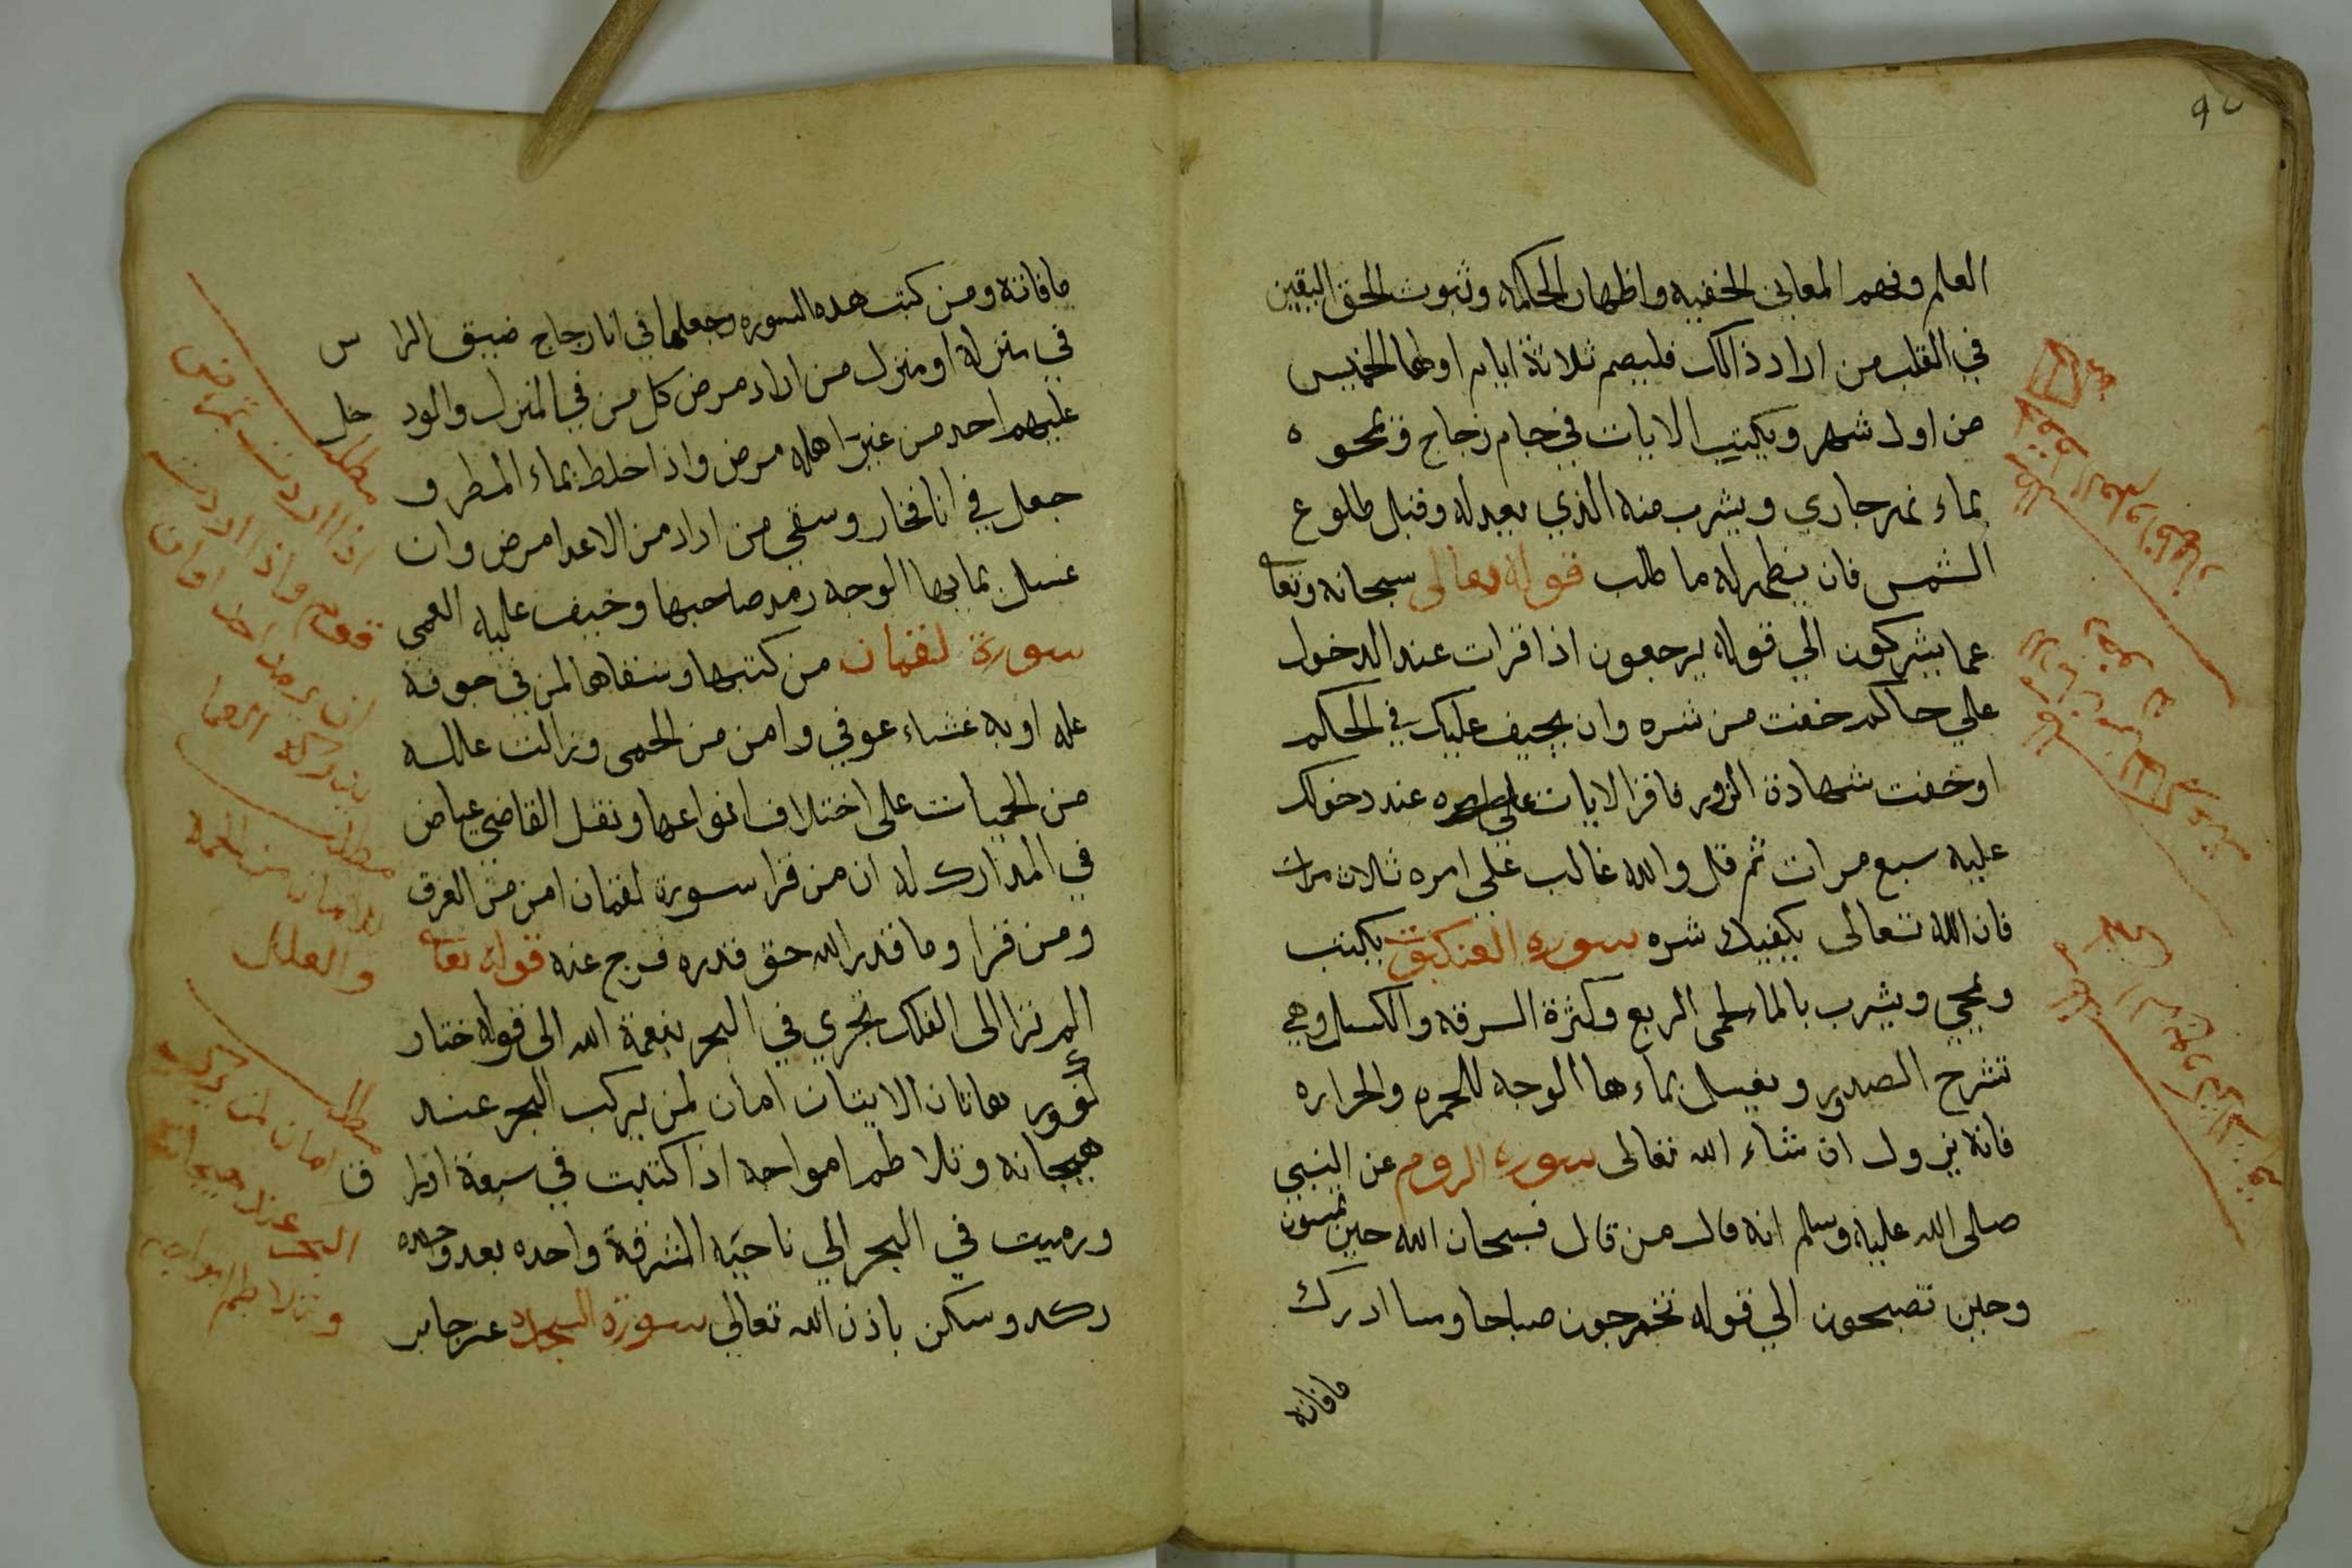 العلم وفهم المعاني الخفيه واظهار الحكمه وثبوت الحق اليقين
في القلب من اراد ذالك فليصم ثلاثة ايام اولها الخميس
من اول شهر ويكتب الايات في جام زجاج وتمحوه
بماء نهر جاري ويشرب منه الذي يعبد له وقبل طلوع
الشمس فان يظهر له ما طلب قوله تعالى سبحانه وتعا
عما يشركون الي قوله يرجعون اذا قرات عند الدخول
علي حاكم خفت من شره وان يحيف عليك في الحكم
اوخفت شهادة الزور فاقرا الايات عند دخولك
عليه سبع مرات ثم قل والله غالب على امره ثلاث مرات
فان الله تعالى يكفيك شره سوره العنكبوت يكتب
ويمحي ويشرب بالماء لحمى الربع وكثرة السرقه والكسل وهي
تشرح الصدور ويغسل بماءها الوجه للحمره والحراره
فانه يزول ان شاء الله تعالى سوره الروم عن النبي
صلى الله عليه وسلم انه قال من قال فسبحان الله حين تمسون
وحين تصبحون الي قوله تخرجون صباحا ومسا ادرك
مافاته
مافاته ومن كتب هذه السوره وجعلها في انا زجاج ضيق الراس
في منزله او منزل من اراد مرض كل من في المنزل والود خل
عليهم احد من غير اهله مرض واذا خلط بماء المطر و
جعل في انا فخار وسقي من اراد من الاعدا مرض وان
غسل بمايها الوجه رمد صاحبها وخيف عليه العمى
سورة لقمان من كتبها وسقاها لمن في جوفه
عله او به غشاء عوفي وامن من الحمى وزالت علله
من الحميات على اختلاف انواعها ونقل القاضي عياض
في المدارك له ان من قرا سورة لقمان امن من الغرق
ومن قرا وما قدر الله حق قدره فرج عنه قوله تعا
الم ترا الى الفلك تجري في البحر بنعمة الله الى قوله ختار
كفور هاتان الايتان امان لمن يركب البحر عند
هيجانه وتلاطم امواجه اذا كتبت في سبعة اورا ق
ورميت في البحر الي ناحيه المشرقة واحده بعد وحده
ركد وسكن باذن الله تعالى سورة السجده عن جابر
مطلب
اذا اردت تمرض
قوم واذا اردت
مطلب
للامان من الحمه
والعلل
مطلب
امان لمن يركب
البحر عند هيجانه
وتلاطم امواجه